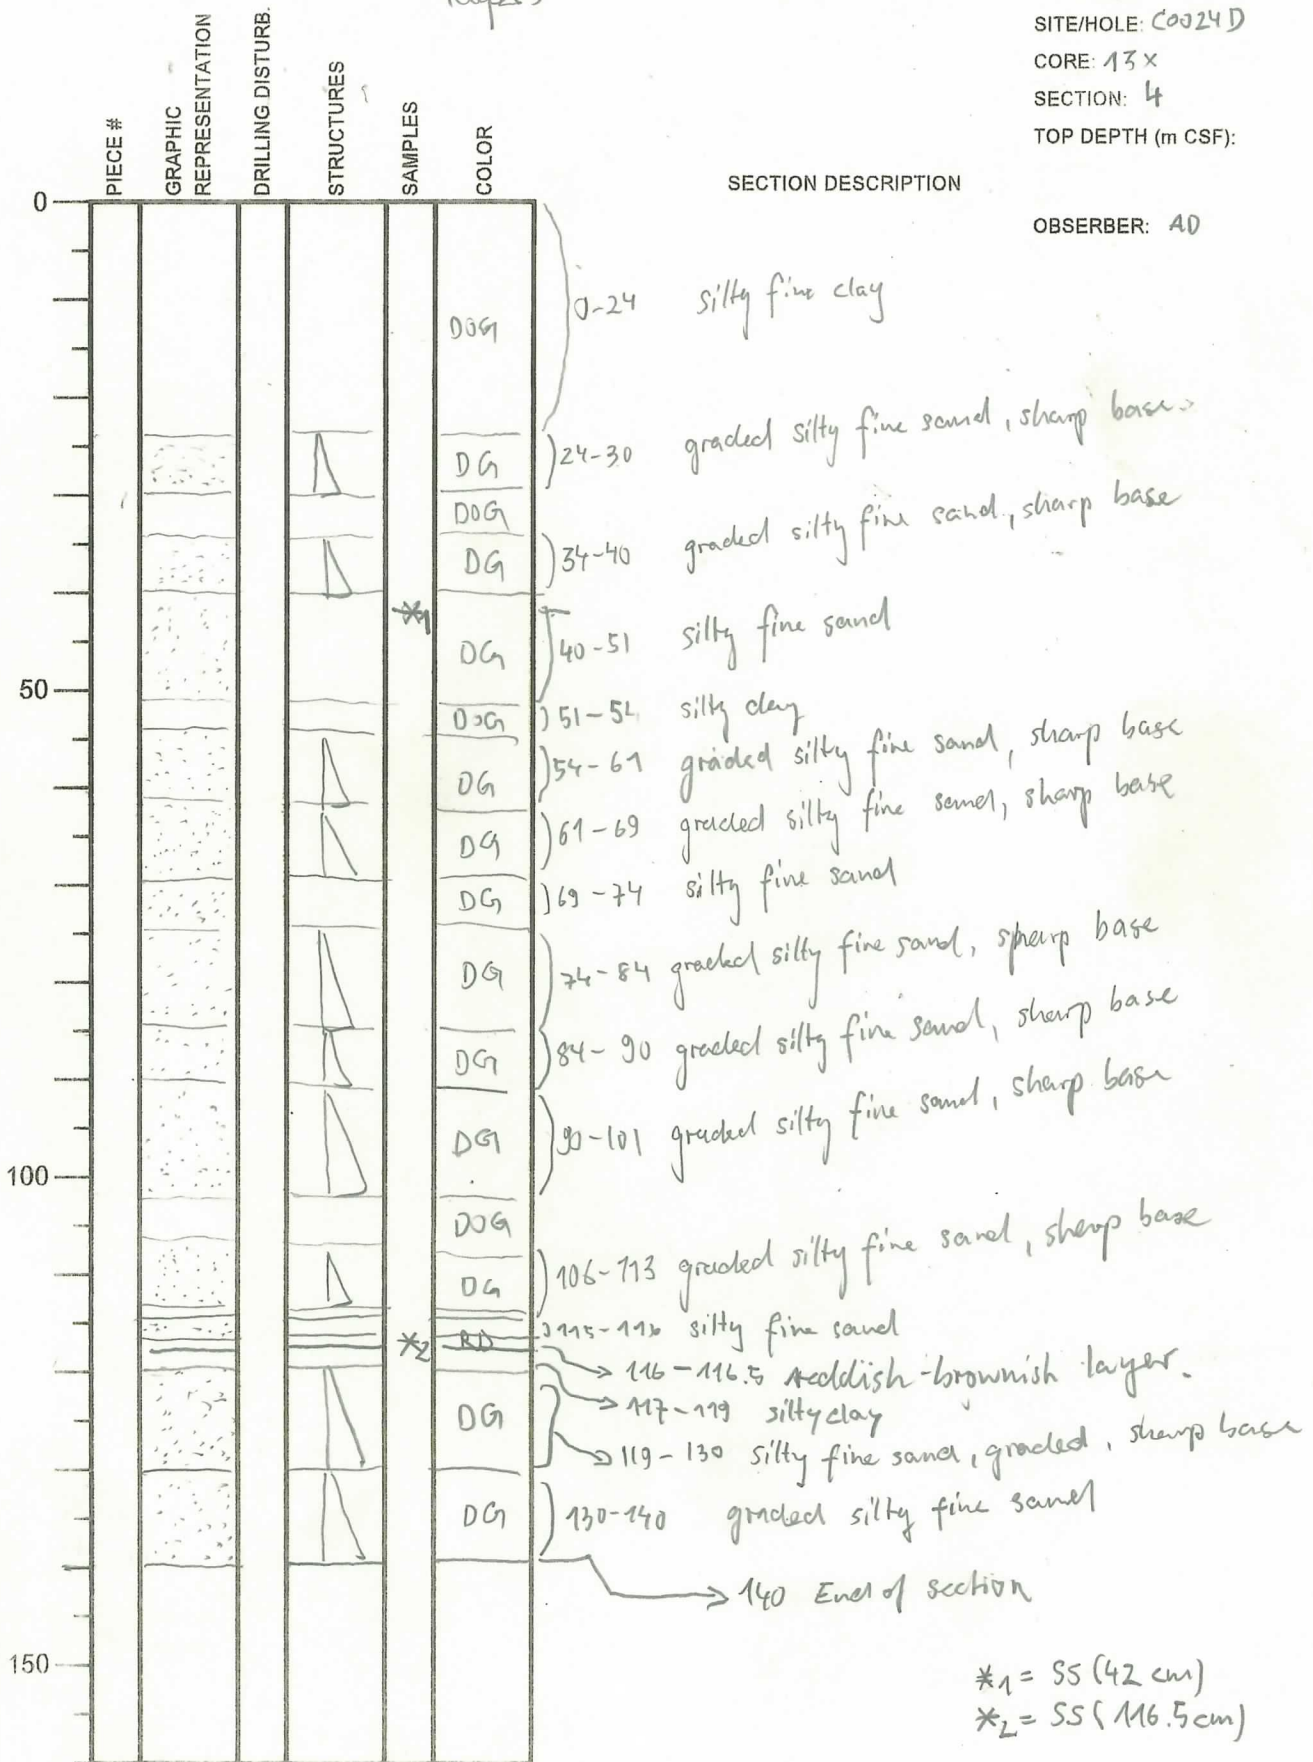 SITE/HOLE: C0024D
CORE: 13X
SECTION: 4
TOP DEPTH (m CSF):
PIECE #
GRAPHIC REPRESENTATION
DRILLING DISTURB.
STRUCTURES
SAMPLES
COLOR
SECTION DESCRIPTION
OBSERBER: AD
0
DOG 0-24 silty fine clay
DG 24-30 graded silty fine sand, sharp base
DOG
DG 34-40 graded silty fine sand, sharp base
*1
DG 40-51 silty fine sand
50
DOG 51-54 silty clay
DG 54-61 graded silty fine sand, sharp base
DG 61-69 graded silty fine sand, sharp base
DG 69-74 silty fine sand
DG 74-84 graded silty fine sand, sharp base
DG 84-90 graded silty fine sand, sharp base
DG 90-101 graded silty fine sand, sharp base
100
DOG
DG 106-113 graded silty fine sand, sharp base
*2 RD 115-116 silty fine sand
116-116.5 reddish-brownish layer.
117-119 silty clay
DG 119-130 silty fine sand, graded, sharp base
DG 130-140 graded silty fine sand
140 End of section
150
*1 = SS (42 cm)
*2 = SS (116.5 cm)